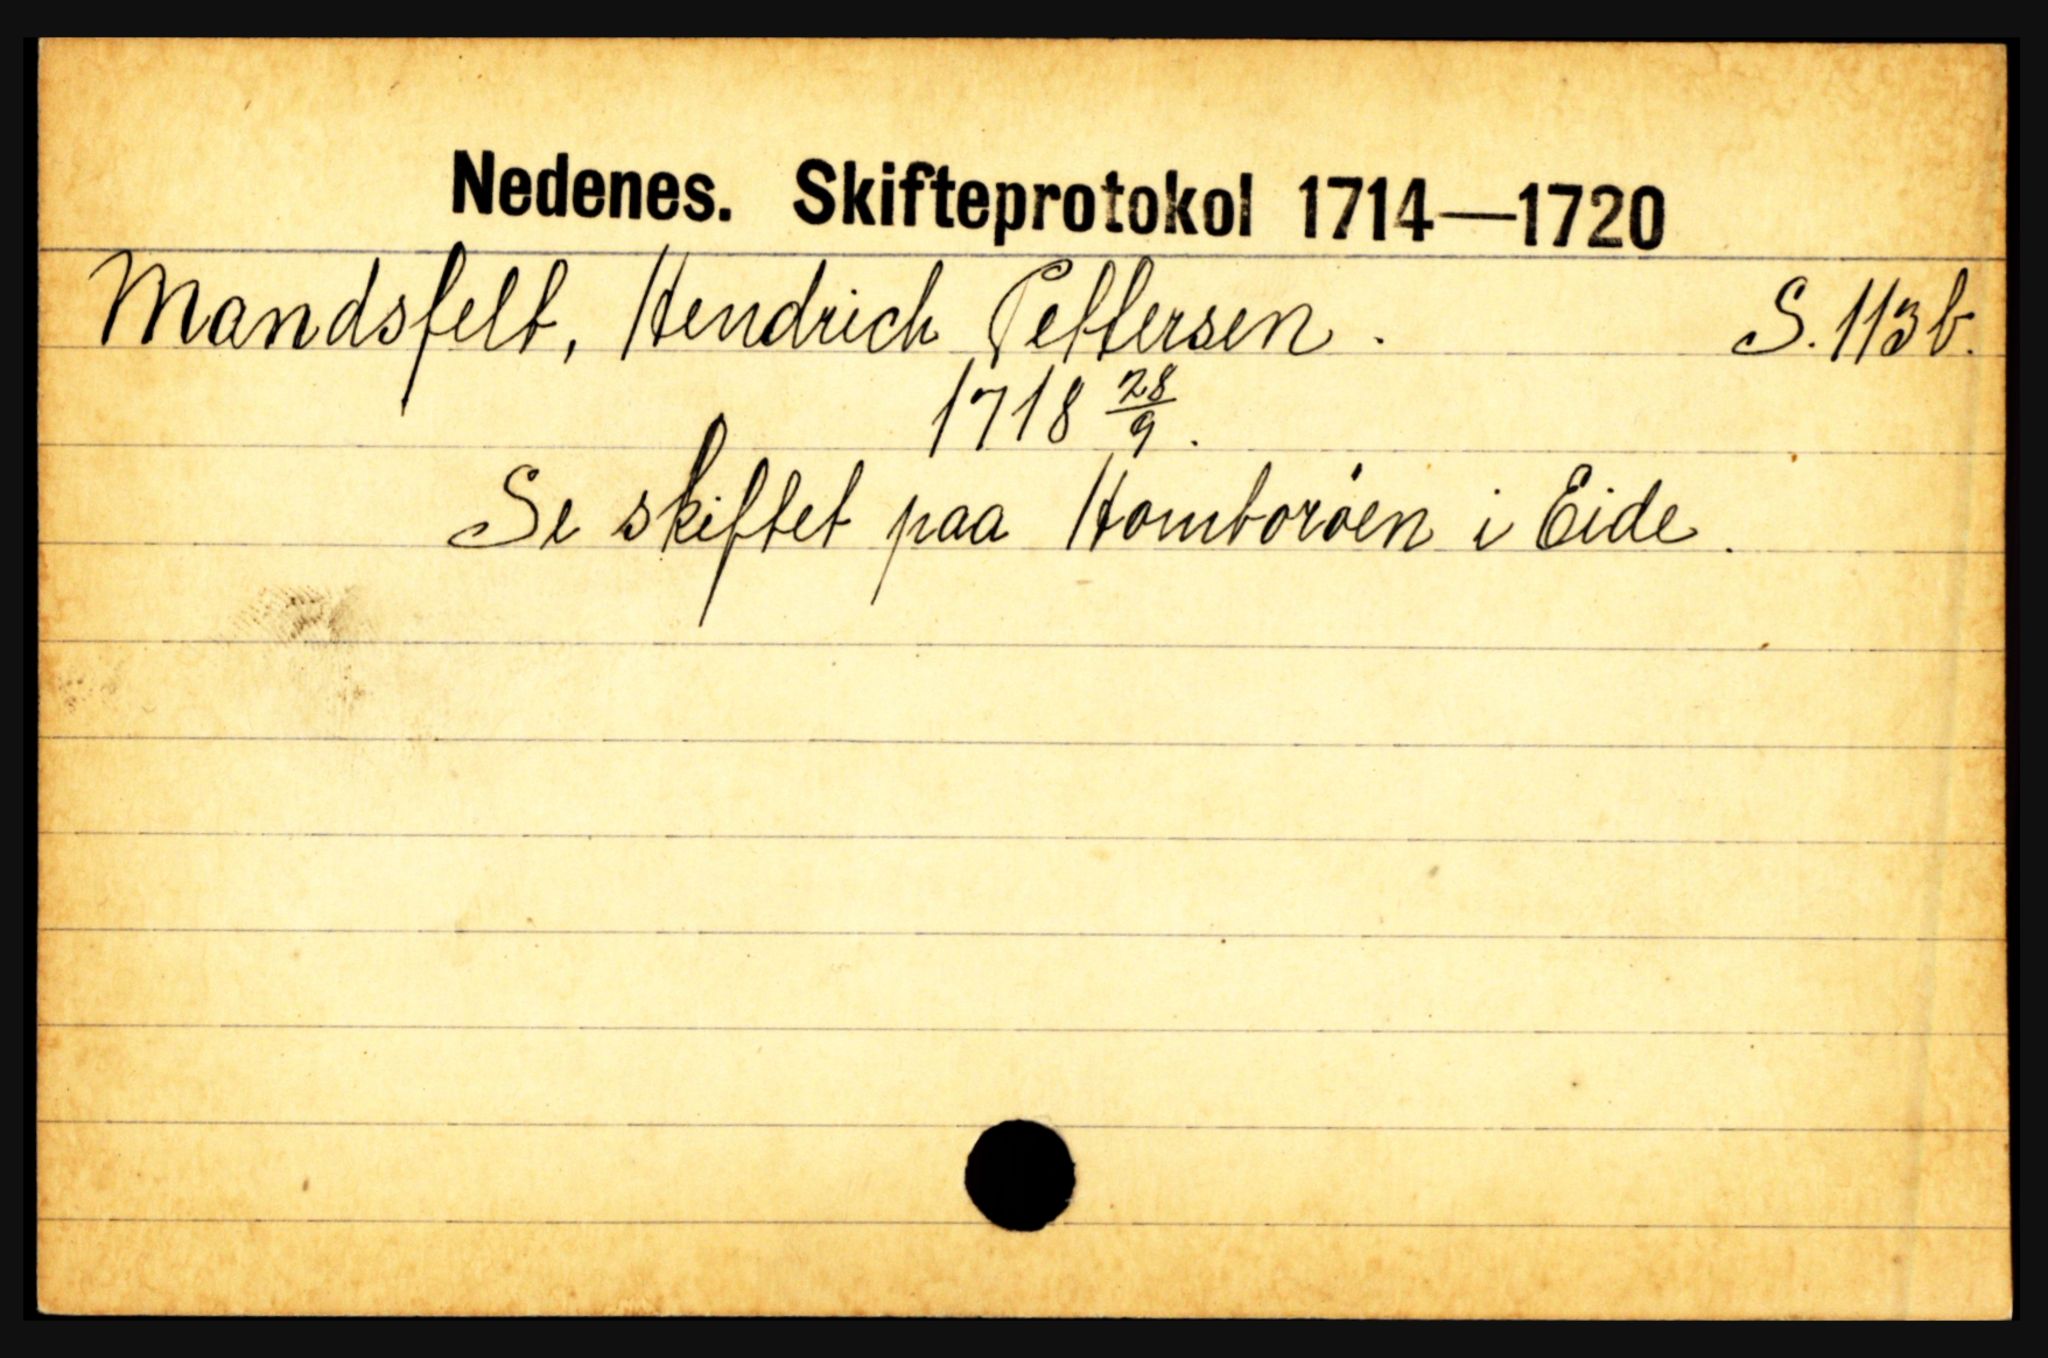 Nedenes. Skifteprotokol 1714—1720
Mandsfelt, Hendrich Pettersen. S. 113b.
1718 28/9.
Se skiftet paa Homborøen i Eide.